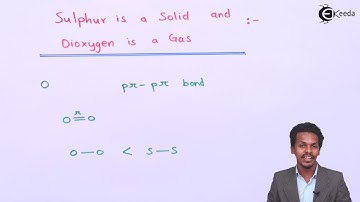 Sulphur is a Solid and :-
Dioxygen is a Gas
O pπ-pπ bond
π
O=O
O—O < S—S
Ekeeda